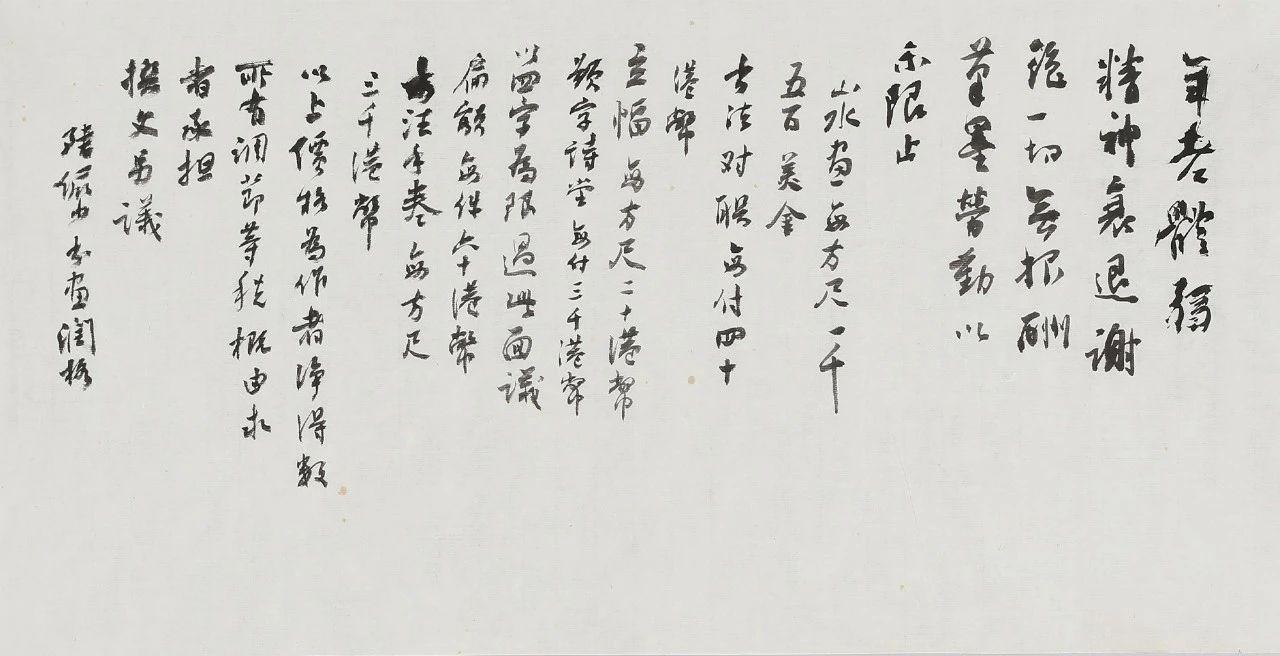 年老體弱
精神衰退謝
絕一切無根酬
筆墨營勤以
示限止
山水画每方尺一千
五百美金
書法对联每付四十
港幣
立幅每方尺二十港幣
题字詩堂每付三千港幣
以四字為限過此面議
扁額每件六十港幣
書法手卷每方尺
三千港幣
以上價格為作者净得数
所有调节等稅概由求
者承担
撰文另議
陸儼少書画潤格